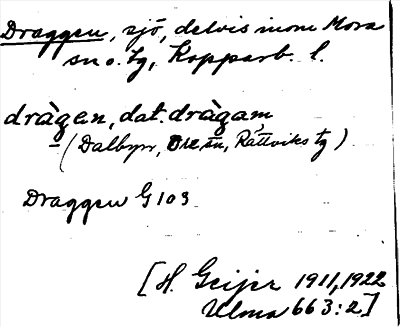 Draggen, sjö, delvis inom Mora
sn o. tg, Kopparb. l.
dràgen, dat. dràgam
(Dalbyn, Ore sn, Rättviks tg)
Draggen G 103
[H. Geijer 1911, 1922
Ulma 663:2]